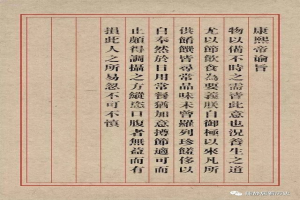 康熙帝諭旨
物以備不時之需皆此意也況養生之道
尤以節飲食為要義朕自御極以來凡所
供餚饌皆尋常品味未嘗羅列珍饈侈以
自奉然於日用常餐猶加意撙節適可而
止頗得調攝之方縱恣口腹者無益而有
損此人之所易忽不可不慎